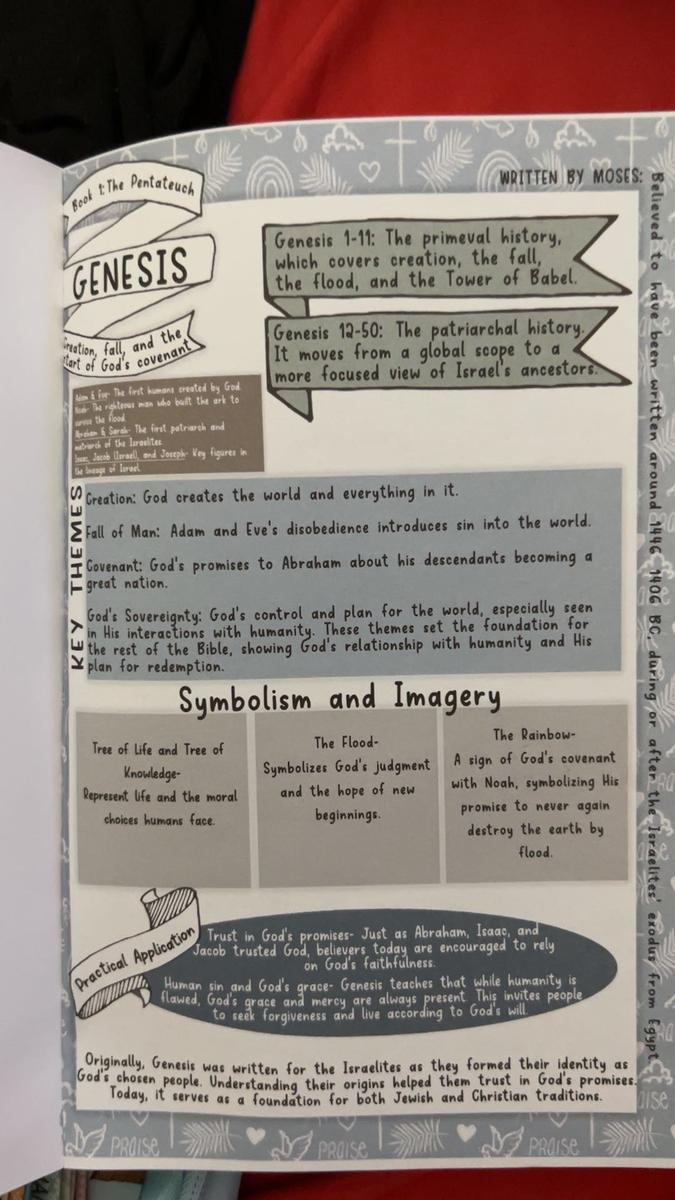 Book 1: The Pentateuch
GENESIS
Creation, fall, and the
start of God's covenant
WRITTEN BY MOSES:
Believed to have been written around 1446-1406 BC, during or after the Israelites' exodus from Egypt
Genesis 1-11: The primeval history,
which covers creation, the fall,
the flood, and the Tower of Babel.
Genesis 12-50: The patriarchal history.
It moves from a global scope to a
more focused view of Israel's ancestors.
Adam & Eve- The first humans created by God.
Noah- The righteous man who built the ark to
survive the flood.
Abraham & Sarah- The first patriarch and
matriarch of the Israelites.
Isaac, Jacob (Israel), and Joseph- Key figures in
the lineage of Israel.
KEY THEMES
Creation: God creates the world and everything in it.
Fall of Man: Adam and Eve's disobedience introduces sin into the world.
Covenant: God's promises to Abraham about his descendants becoming a
great nation.
God's Sovereignty: God's control and plan for the world, especially seen
in His interactions with humanity. These themes set the foundation for
the rest of the Bible, showing God's relationship with humanity and His
plan for redemption.
Symbolism and Imagery
Tree of Life and Tree of
Knowledge-
Represent life and the moral
choices humans face.
The Flood-
Symbolizes God's judgment
and the hope of new
beginnings.
The Rainbow-
A sign of God's covenant
with Noah, symbolizing His
promise to never again
destroy the earth by
flood.
Practical Application
Trust in God's promises- Just as Abraham, Isaac, and
Jacob trusted God, believers today are encouraged to rely
on God's faithfulness.
Human sin and God's grace- Genesis teaches that while humanity is
flawed, God's grace and mercy are always present. This invites people
to seek forgiveness and live according to God's will.
Originally, Genesis was written for the Israelites as they formed their identity as
God's chosen people. Understanding their origins helped them trust in God's promises.
Today, it serves as a foundation for both Jewish and Christian traditions.
PRAISE
PRAISE
PRAISE